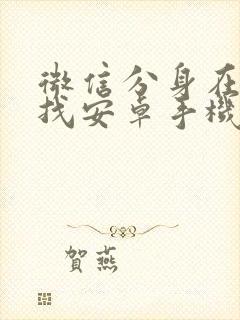 微信分身在
找安卓手機
賀燕